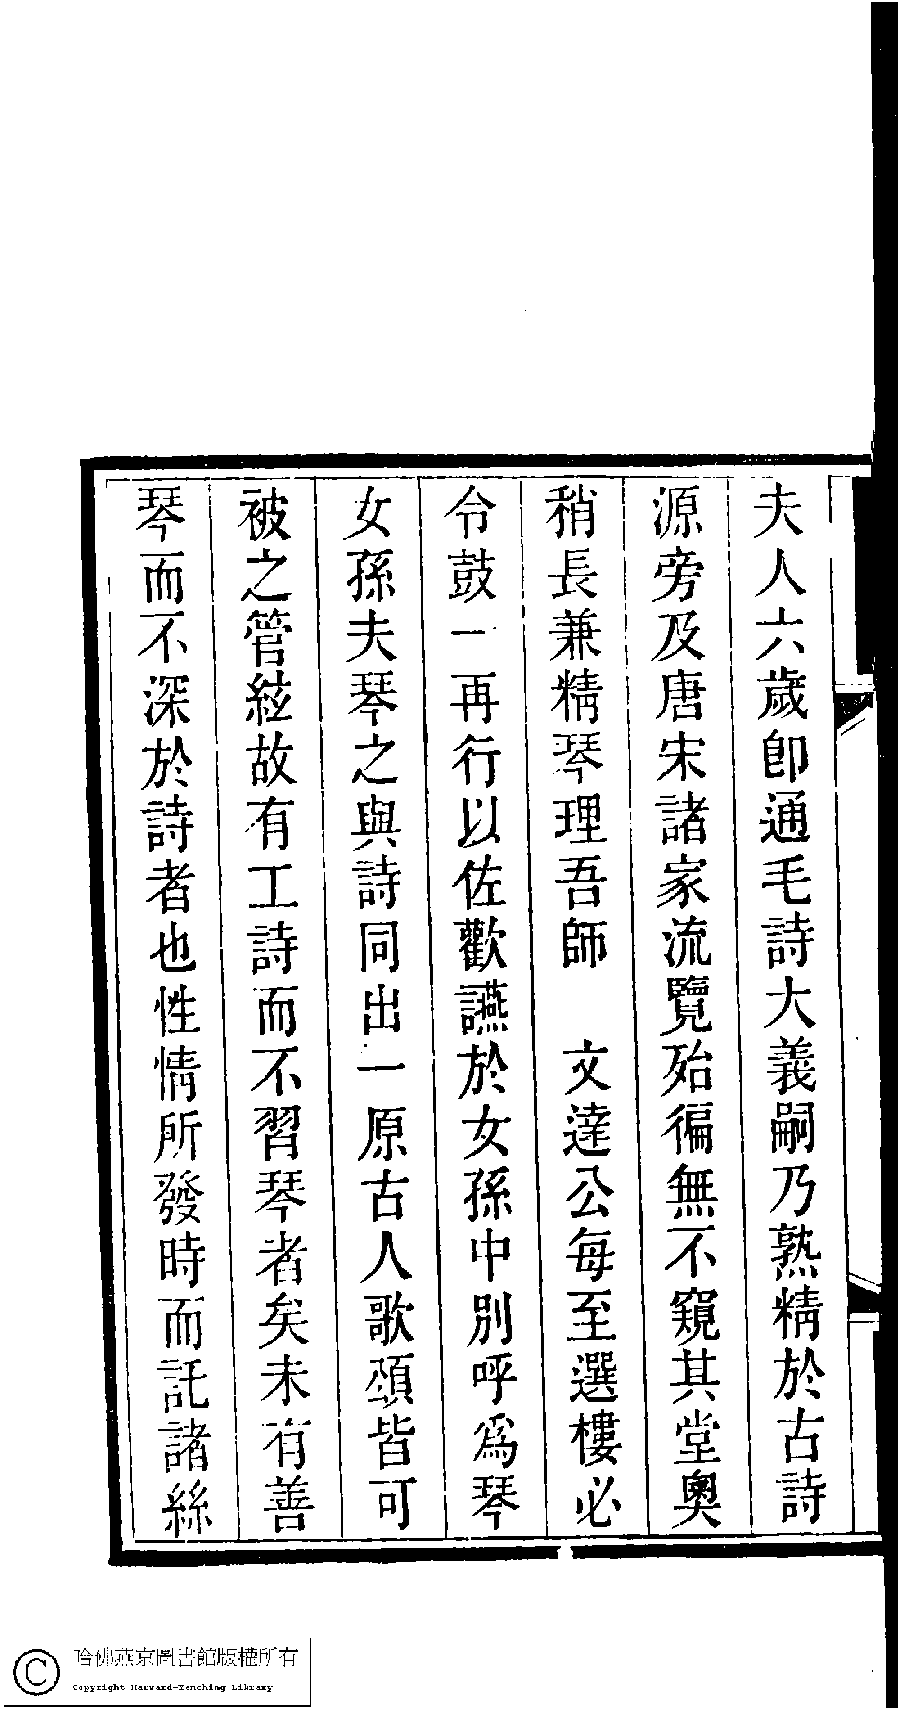 夫人六歲卽通毛詩大義嗣乃熟精於古詩
源旁及唐宋諸家流覽殆徧無不窺其堂奧
稍長兼精琴理吾師　文達公每至選樓必
令鼓一再行以佐歡讌於女孫中別呼爲琴
女孫夫琴之與詩同出一原古人歌頌皆可
被之管絃故有工詩而不習琴者矣未有善
琴而不深於詩者也性情所發時而託諸絲
哈佛燕京圖書館版權所有
Copyright Harvard-Yenching Library